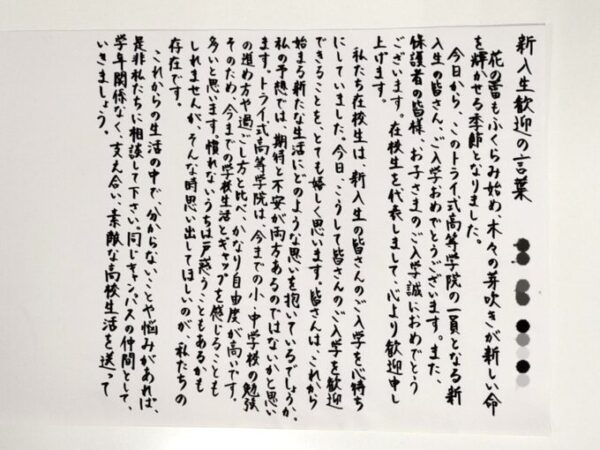 新入生歓迎の言葉
花の蕾もふくらみ始め、木々の芽吹きが新しい命
を輝かせる季節となりました。
今日から、このトライ式高等学院の一員となる新
入生の皆さん、ご入学おめでとうございます。また、
保護者の皆様、お子さまのご入学誠におめでとう
ございます。在校生を代表しまして、心より歓迎申し
上げます。
私たち在校生は、新入生の皆さんのご入学を心待ち
にしていました。今日、こうして皆さんのご入学を歓迎
できることを、とても嬉しく思います。皆さんは、これから
始まる新たな生活にどのような思いを抱いているでしょうか。
私の予想では、期待と不安が両方あるのではないかと思い
ます。トライ式高等学院は、今までの小、中学校の勉強
の進め方や過ごし方と比べ、かなり自由度が高いです。
そのため、今までの学校生活とギャップを感じることも
多いと思います。慣れないうちは戸惑うこともあるかも
しれませんが、そんな時思い出してほしいのが、私たちの
存在です。
これからの生活の中で、分からないことや悩みがあれば、
是非私たちに相談して下さい。同じキャンパスの仲間として、
学年関係なく、支え合い、素敵な高校生活を送って
いきましょう。